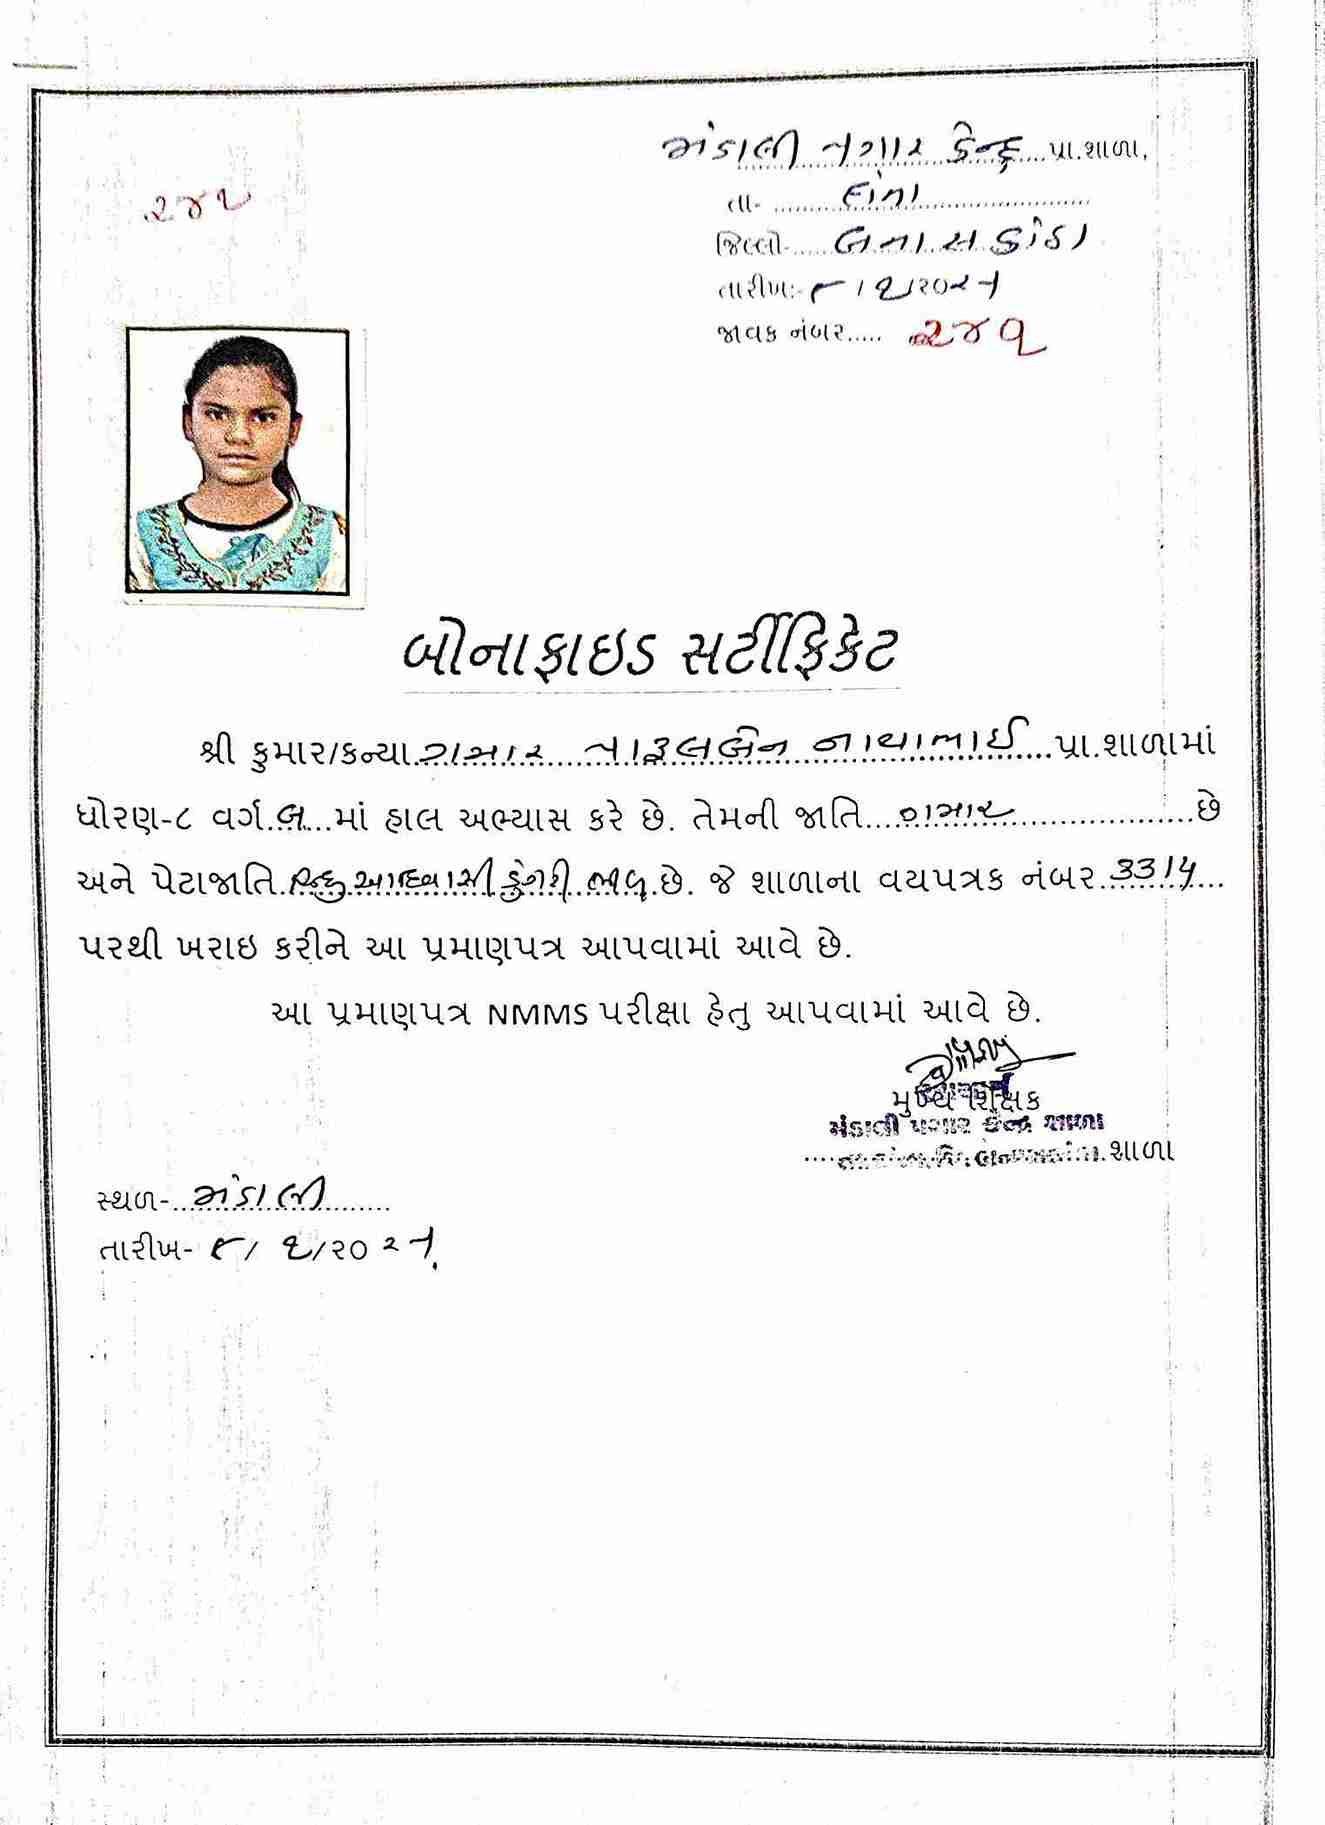 ૨૪૧
મંડાલી પગાર કેન્દ્ર પ્રા.શાળા,
તા- દાંતા
જિલ્લો- બનાસકાંઠા
તારીખ:- ૮/૧/૨૦૨૫
જાવક નંબર..... ૨૪૧
બોનાફાઇડ સર્ટીફિકેટ
શ્રી કુમાર/કન્યા ગમાર નાથાભાઈ પ્રા.શાળામાં
ધોરણ-૮ વર્ગ બ માં હાલ અભ્યાસ કરે છે. તેમની જાતિ ગમાર છે
અને પેટાજાતિ હિન્દુ આદિવાસી ડુંગરી ભીલ છે. જે શાળાના વયપત્રક નંબર 3314
પરથી ખરાઇ કરીને આ પ્રમાણપત્ર આપવામાં આવે છે.
આ પ્રમાણપત્ર NMMS પરીક્ષા હેતુ આપવામાં આવે છે.
મુખ્ય શિક્ષક
મંડાલી પગાર કેન્દ્ર શાળા
શાળા
સ્થળ- મંડાલી
તારીખ- ૮/૧/૨૦૨૫